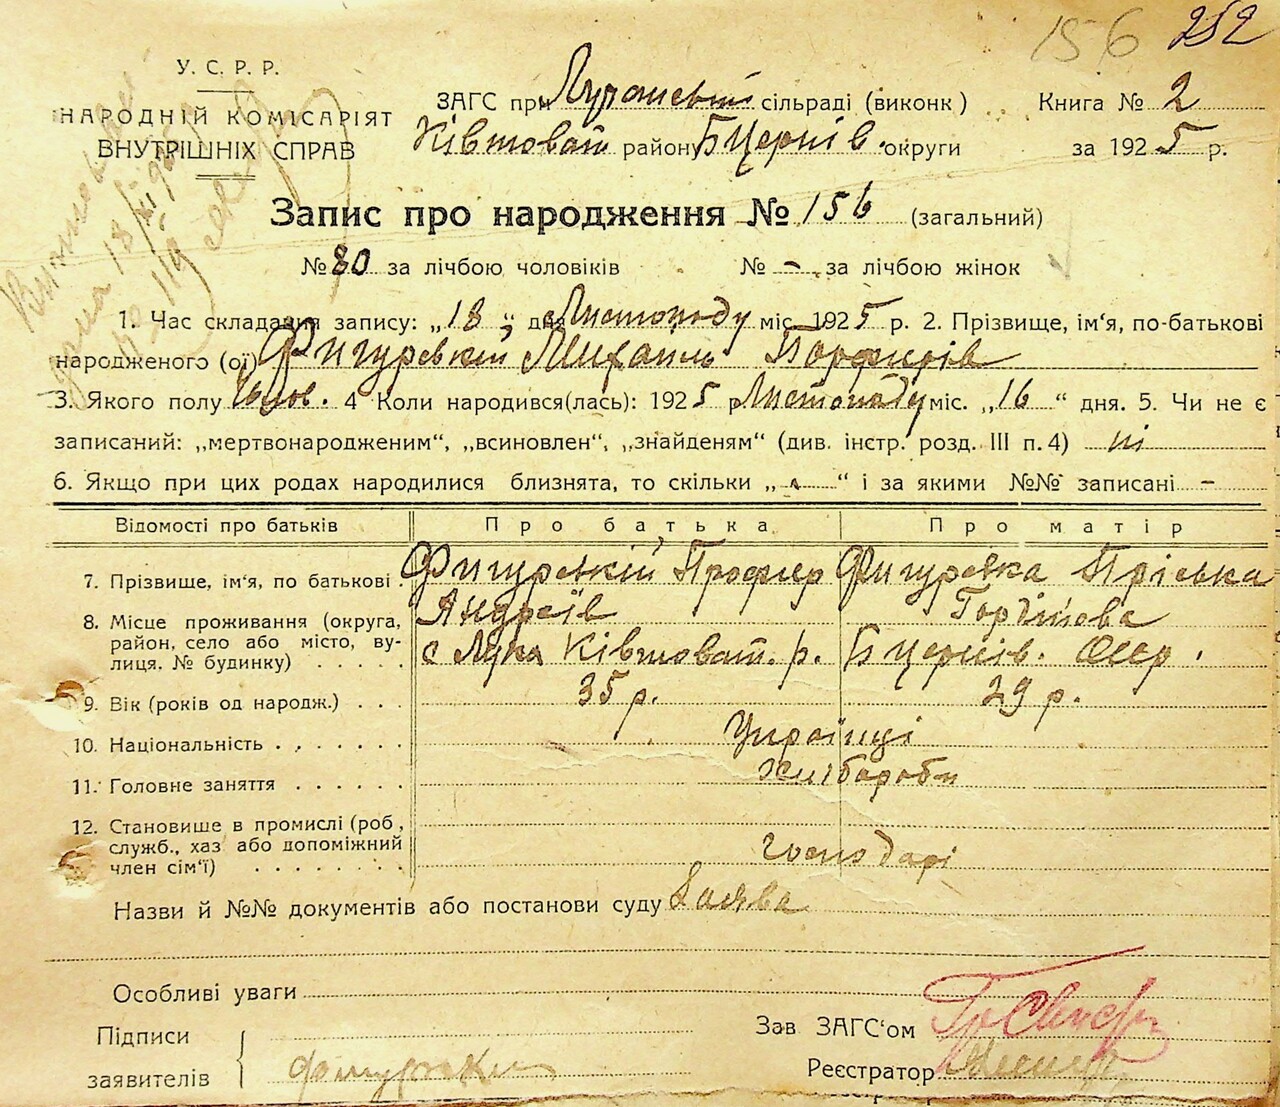 156 252
У. С. Р. Р.
НАРОДНІЙ КОМІСАРІЯТ
ВНУТРІШНІХ СПРАВ
ЗАГС при сільраді (виконк)
Книга № 2
Ківшоват району Б Церків. округи
за 1925 р.
Запис про народження № 156 (загальний)
№ 80 за лічбою чоловіків № - за лічбою жінок
1. Час складання запису: „18„ дня Листопаду міс. 1925 р. 2. Прізвище, ім‘я, по-батькові
народженого (ої) Фигуревкий Михаіль Порфирів
3. Якого полу Чолов. 4 Коли народився(лась): 1925 р Листопаду міс. „16“ дня. 5. Чи не є
записаний: „мертвонародженим“, „всиновлен“, „знайденям“ (див. інстр. розд. III п. 4) ні
6. Якщо при цих родах народилися близнята, то скільки „-“ і за якими №№ записані -
Відомості про батьків Про батька Про матір
7. Прізвище, ім‘я, по батькові Фигуревкій Профир Фигуревка Пріська
Андреїв
8. Місце проживання (округа,
район, село або місто, ву-
лиця. № будинку)
с Лука Ківшоват. р. Б Церків. Окр.
9. Вік (років од народж.) 35 р. 29 р.
10. Національність Українці
11. Головне заняття Хлібороби
12. Становище в промислі (роб,
служб., хаз або допоміжний
член сім‘ї) Господарі
Назви й №№ документів або постанови суду Заява
Особливі уваги
Підписи
заявителів
Зав ЗАГС‘ом
Реєстратор